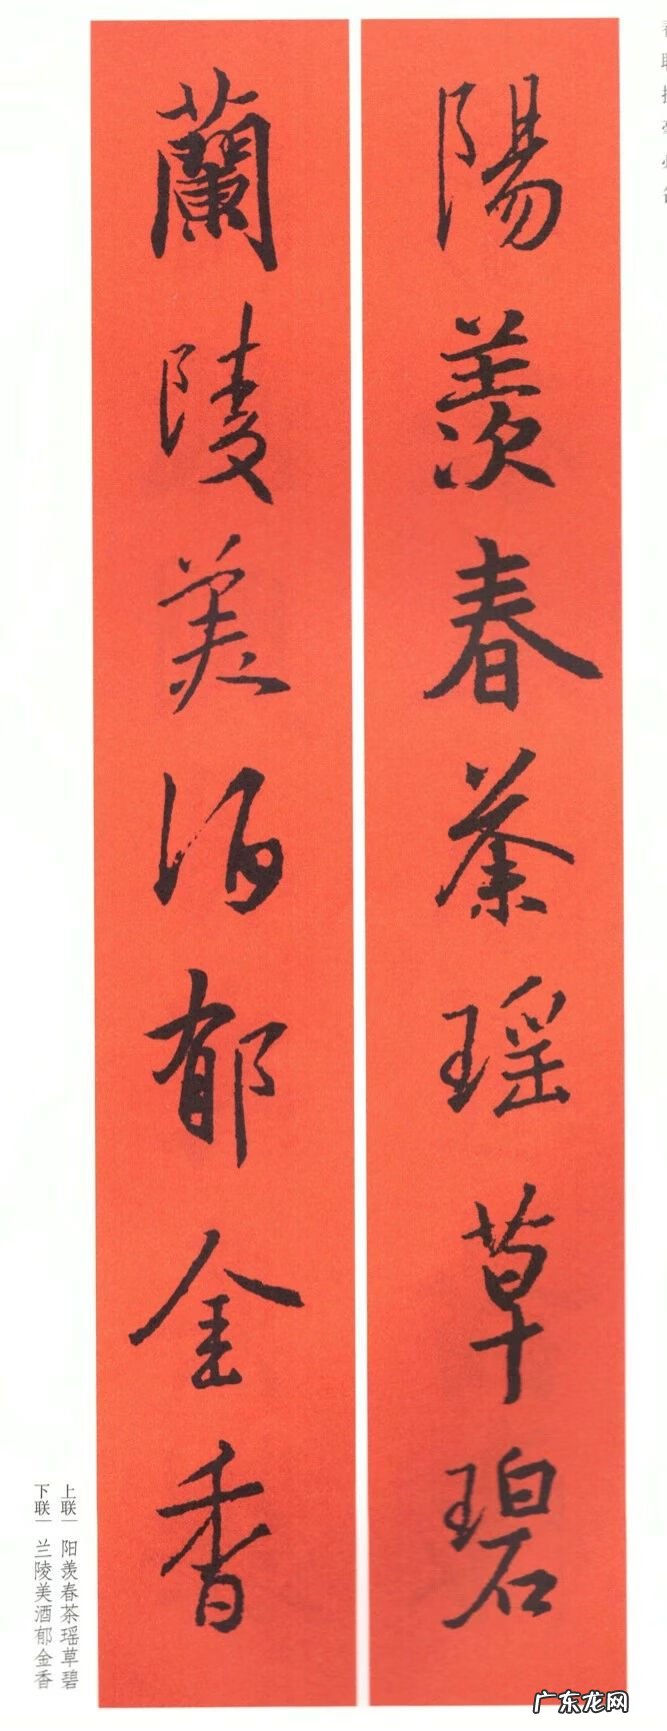 陽羨春茶瑶草碧
蘭陵美酒郁金香
上联 阳羡春茶瑶草碧
下联 兰陵美酒郁金香
广东龙网